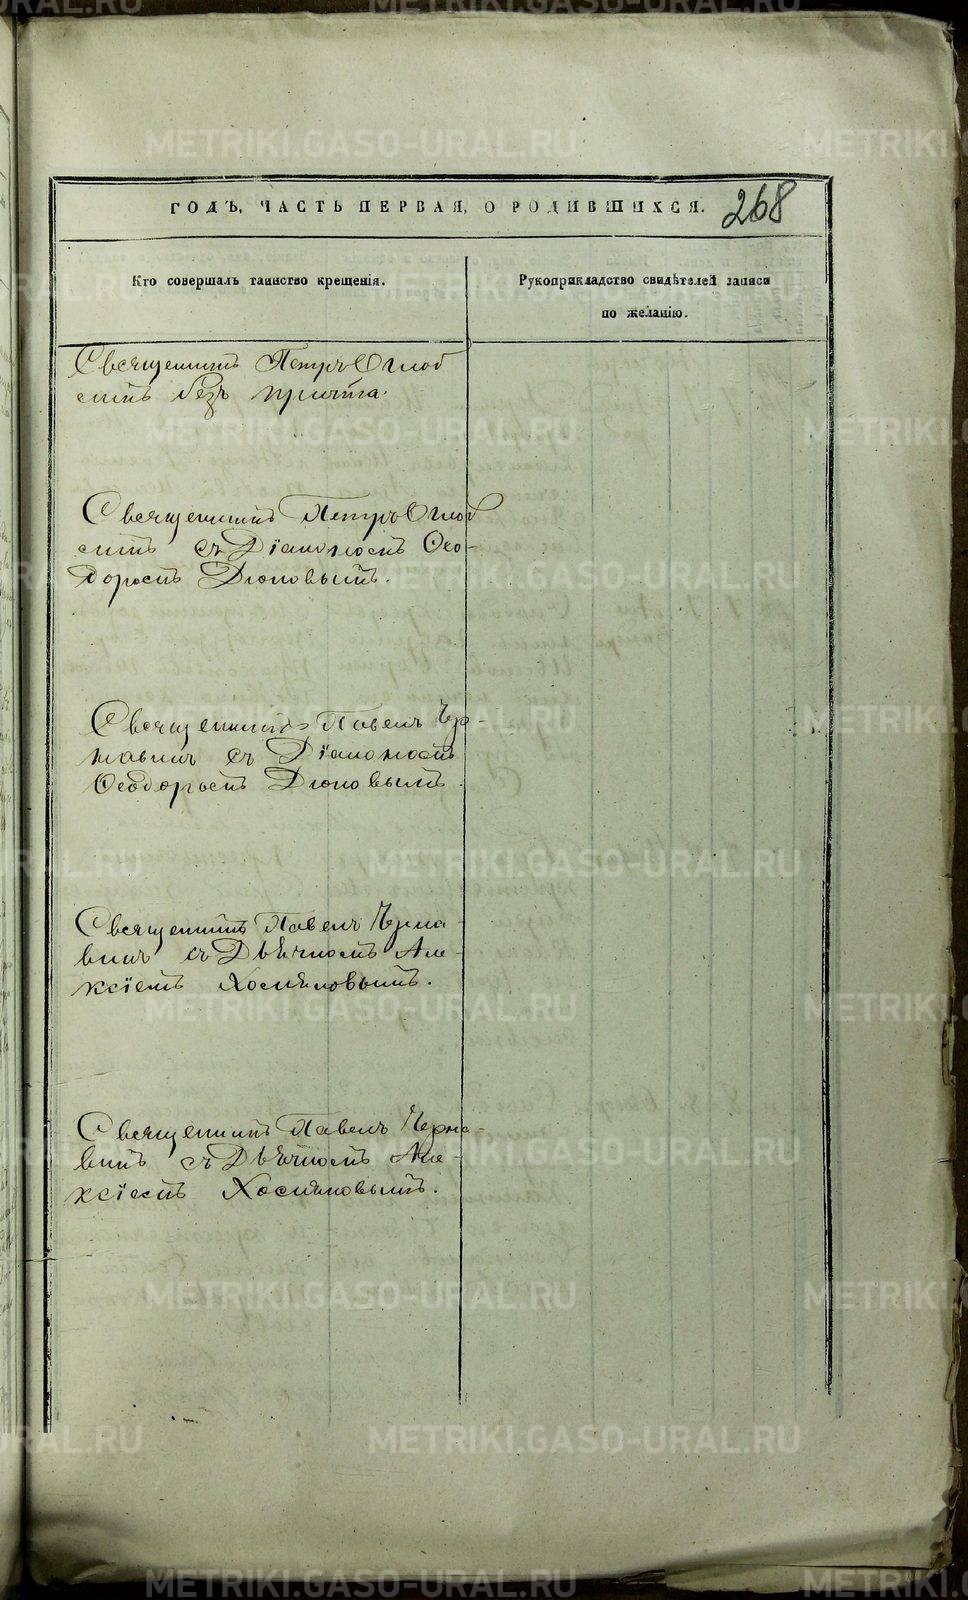 ГОДЪ, ЧАСТЬ ПЕРВАЯ, О РОДИВШИХСЯ. 268
Кто совершалъ таинство крещенія.
Рукоприкладство свидѣтелей записи
по желанію.
Священникъ Петръ Оглоб
линъ безъ причта.
Священникъ Петръ Оглоб
линъ съ Діакономъ Ѳео-
доромъ Дюповымъ.
Священникъ Павелъ Чер-
навинъ съ Діакономъ
Ѳеодоромъ Дюповымъ.
Священникъ Павелъ Черна-
винъ съ Дьячкомъ Але-
ксіемъ Хосняковымъ.
Священникъ Павелъ Черна-
винъ съ Дьячкомъ Але-
ксіемъ Хосняковымъ.
METRIKI.GASO-URAL.RU